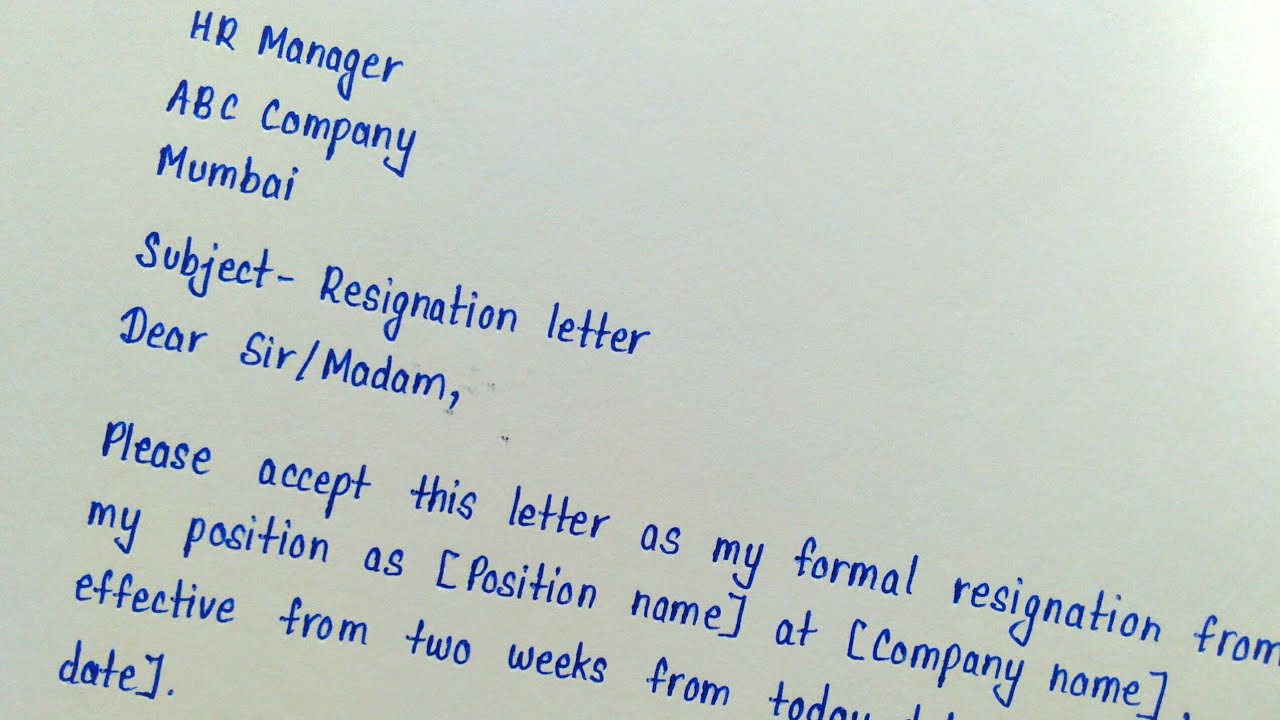 HR Manager
ABC Company
Mumbai
Subject- Resignation letter
Dear Sir/Madam,
Please accept this letter as my formal resignation from
my position as [Position name] at [Company name],
effective from two weeks from today
date].